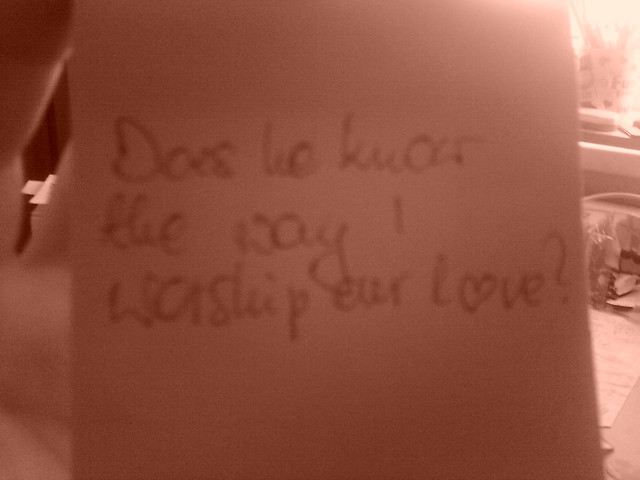 Does he know
the way I
worship our love?